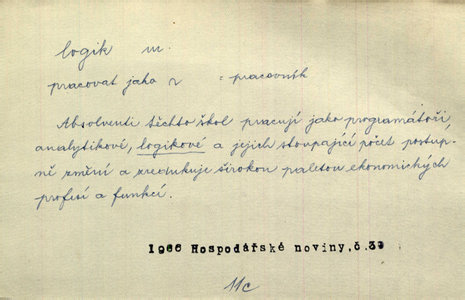 logik m.
pracovat jako ~ = pracovník
Absolventi těchto škol pracují jako programátoři,
analytikové, logikové a jejich stoupající počet postup-
ně změní a zredukuje širokou paletou ekonomických
profesí a funkcí.
1966 Hospodářské noviny, č.39
11c